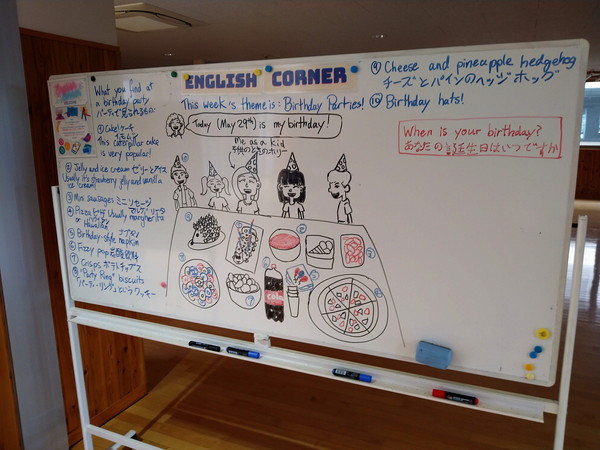 ENGLISH CORNER
This week's theme is: Birthday Parties!
Today (May 29th) is my birthday!
Me as a kid
子供のときのホリー
What you find at
a birthday party
パーティーで見られるもの:
① Cake! ケーキ
イモムシ
This caterpillar cake
is very popular!
② Jelly and ice cream ゼリーとアイス
Usually it's strawberry jelly and vanilla
ice cream!
③ Mini sausages ミニソセージ
④ Pizza ピザ Usually margherita マルゲリータ
or Hawaiian ハワイアン
⑤ Birthday-style napkin ナプキン
⑥ Fizzy pop 炭酸飲料
⑦ Crisps ポテトチップス
⑧ "Party Ring" biscuits
"パーティーリング"というクッキー
⑨ Cheese and pineapple hedgehog
チーズとパインのヘッジホッグ
⑩ Birthday hats!
When is your birthday?
あなたの誕生日はいつですか
cola